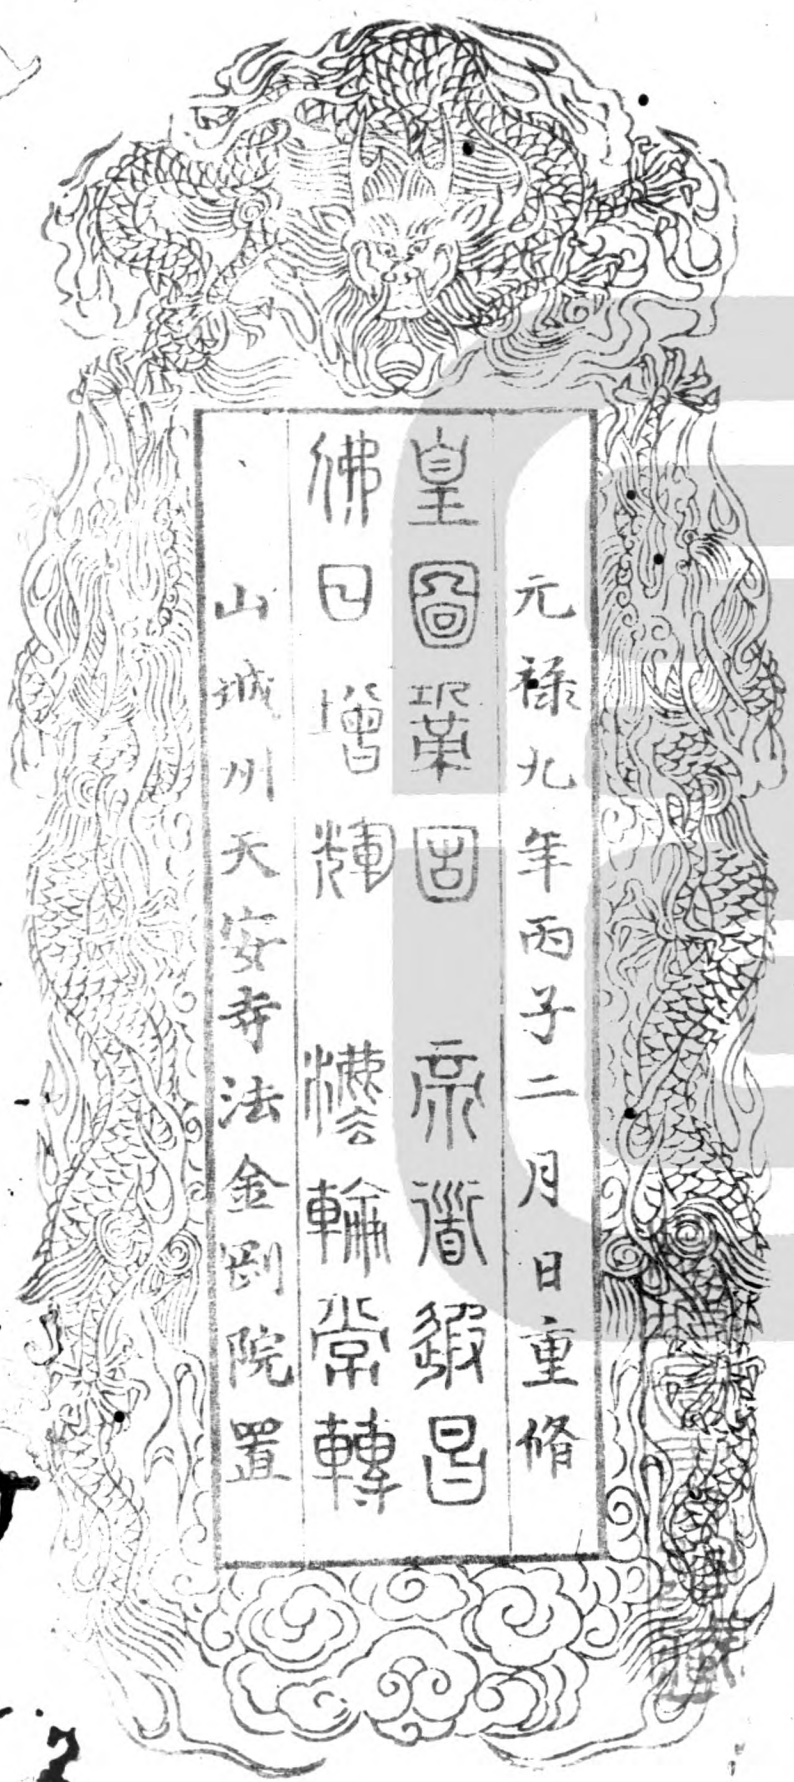 元禄九年丙子二月日重脩
皇圖鞏固　帝道遐昌
佛日增輝　灋輪常轉
山城州天安寺法金剛院置